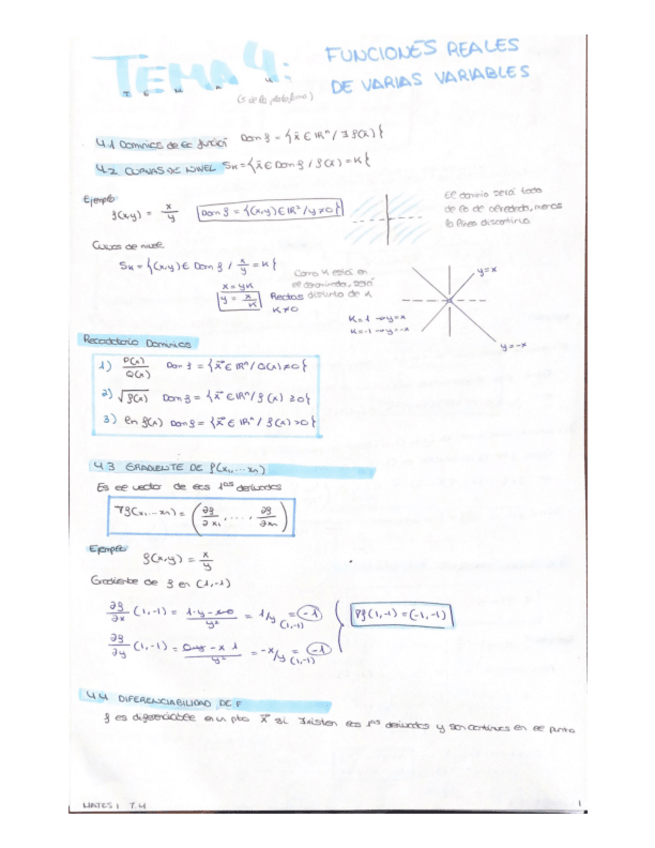 TEMA 4: FUNCIONES REALES
DE VARIAS VARIABLES
T E M A 4
4.1 Dominios de la función Dom f = {x̄ ∈ ℝⁿ / ∃ f(x̄)}
4.2 CURVAS DE NIVEL Sk = {x̄ ∈ Dom f / f(x̄) = K}
Ejemplo
f(x,y) = x/y Dom f = {(x,y) ∈ ℝ² / y ≠ 0}
El dominio será todo
lo de alrededor, menos
la línea discontinua
Curvas de nivel
Sk = {(x,y) ∈ Dom f / x/y = K}
x = yK
y = x/K Rectas
Como K está en
el denominador, será
distinto de
K≠0
y=x
K=1 → y=x
K=-1 → y=-x
y=-x
Recordatorio Dominios
1) P(x)/Q(x) Dom f = {x̄ ∈ ℝⁿ / Q(x) ≠ 0}
2) √f(x) Dom f = {x̄ ∈ ℝⁿ / f(x) ≥ 0}
3) ln f(x) Dom f = {x̄ ∈ ℝⁿ / f(x) > 0}
4.3 GRADIENTE DE f(x₁,...xn)
Es el vector de las 1ªˢ derivadas
∇f(x₁,...xn) = (∂f/∂x₁, ..., ∂f/∂xn)
Ejemplo f(x,y) = x/y
Gradiente de f en (1,-1)
∂f/∂x (1,-1) = 1·y - x·0/y² = 1/y (1,-1) = -1
∇f(1,-1) = (-1,-1)
∂f/∂y (1,-1) = 0·y - x·1/y² = -x/y (1,-1) = -1
4.4 DIFERENCIABILIDAD DE F
f es diferenciable en un pto x̄ si existen las 1ªˢ derivadas y son continuas en el punto
MATES I T.4
1